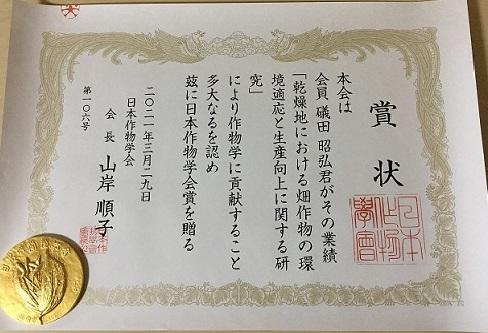 賞状
本会は
会員 礒田 昭弘君がその業績
「乾燥地における畑作物の環
境適応と生産向上に関する研
究」
により作物学に貢献すること
多大なるを認め
茲に日本作物学会賞を贈る
二〇二一年三月二九日
日本作物学会
会長 山岸 順子
第一〇六号
日本
作物
學會